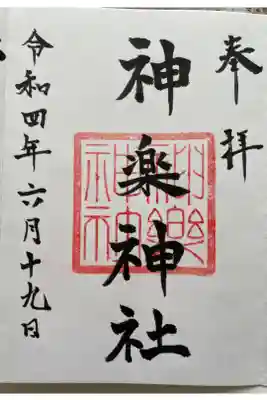 奉拝
神楽神社
神樂神社
令和四年六月十九日